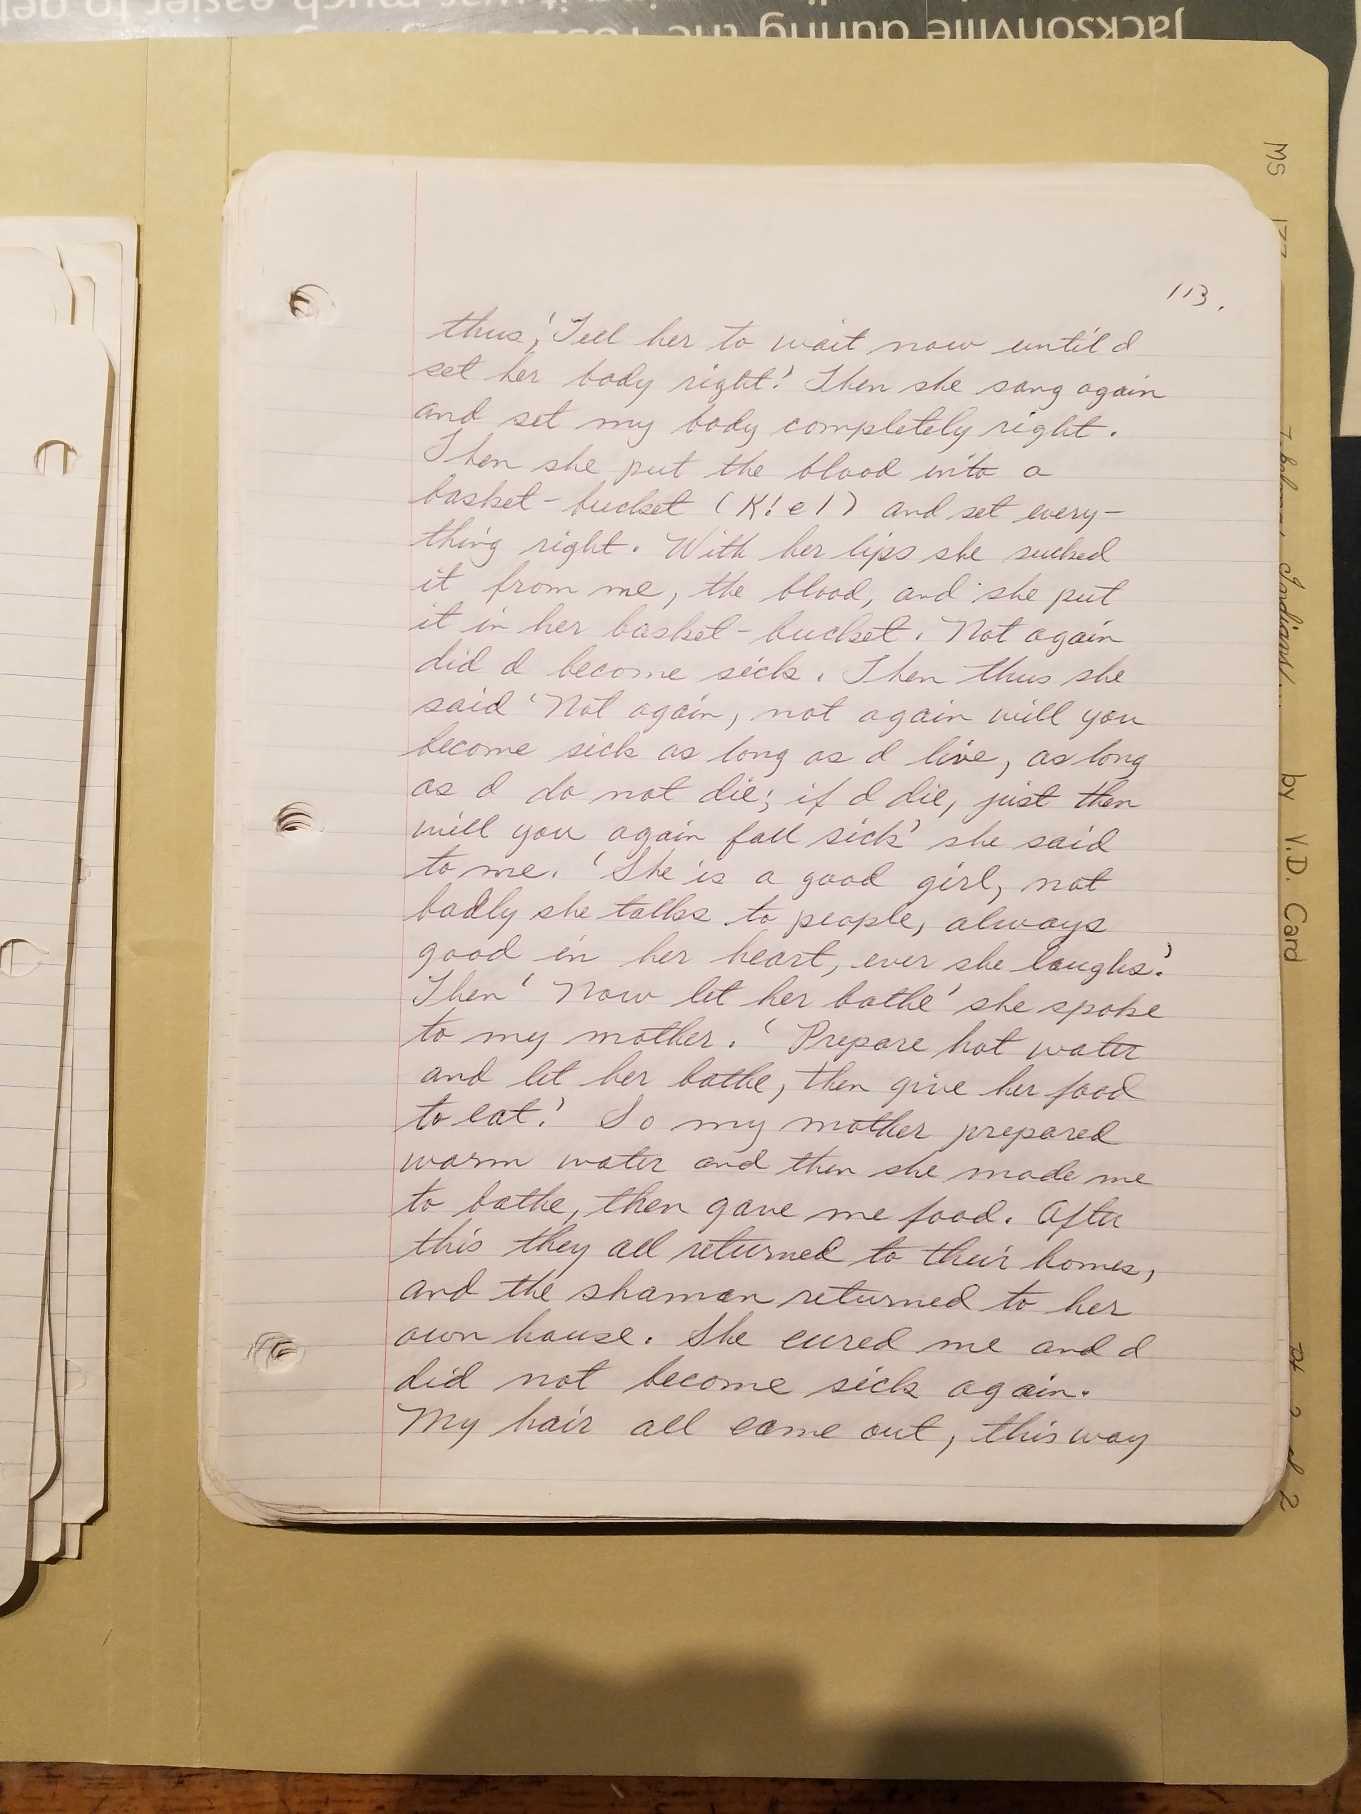 Jacksonville during the 1852
much easier to get
113.
thus, 'Tell her to wait now until I
set her body right.' Then she sang again
and set my body completely right.
Then she put the blood into a
basket-bucket (K!el) and set every-
thing right. With her lips she sucked
it from me, the blood, and she put
it in her basket-bucket. Not again
did I become sick. Then thus she
said 'Not again, not again will you
become sick as long as I live, as long
as I do not die; if I die, just then
will you again fall sick' she said
to me. 'She is a good girl, not
badly she talks to people, always
good in her heart, ever she laughs.'
Then 'Now let her bathe' she spoke
to my mother. 'Prepare hot water
and let her bathe, then give her food
to eat.' So my mother prepared
warm water and then she made me
to bathe, then gave me food. After
this they all returned to their homes,
and the shaman returned to her
own house. She cured me and I
did not become sick again.
My hair all came out, this way
MS Indians by V.D. Card Pt. 2 2